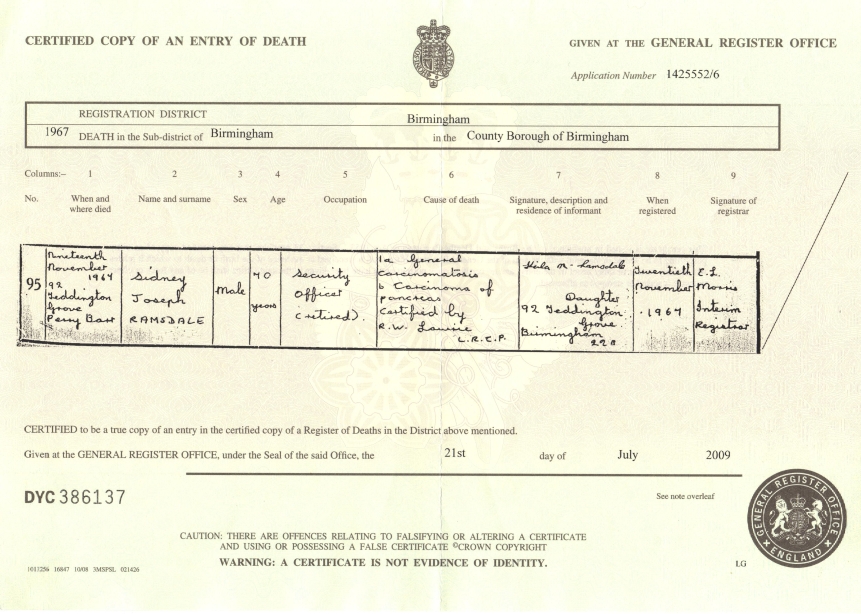 CERTIFIED COPY OF AN ENTRY OF DEATH
GIVEN AT THE GENERAL REGISTER OFFICE
Application Number 1425552/6
REGISTRATION DISTRICT Birmingham
1967 DEATH in the Sub-district of Birmingham in the County Borough of Birmingham
Columns:– 1 2 3 4 5 6 7 8 9
No. When and where died Name and surname Sex Age Occupation Cause of death Signature, description and residence of informant When registered Signature of registrar
95
Nineteenth
November
1967
92
Teddington
Grove
Perry Barr
Sidney
Joseph
RAMSDALE
Male
70
years
Security
Officer
(retired).
1a General
Carcinomatosis
b Carcinoma of
pancreas
Certified by
R.W. Laurie
L.R.C.P.
M. Ramsdale
Daughter
92 Teddington
Grove
Birmingham
Twentieth
November
1967
E.L.
Morris
Interim
Registrar
CERTIFIED to be a true copy of an entry in the certified copy of a Register of Deaths in the District above mentioned.
Given at the GENERAL REGISTER OFFICE, under the Seal of the said Office, the 21st day of July 2009
DYC 386137
See note overleaf
GENERAL REGISTER OFFICE
ENGLAND
CAUTION: THERE ARE OFFENCES RELATING TO FALSIFYING OR ALTERING A CERTIFICATE
AND USING OR POSSESSING A FALSE CERTIFICATE ©CROWN COPYRIGHT
WARNING: A CERTIFICATE IS NOT EVIDENCE OF IDENTITY.
LG
16847 10/08 3MSPSL 021426